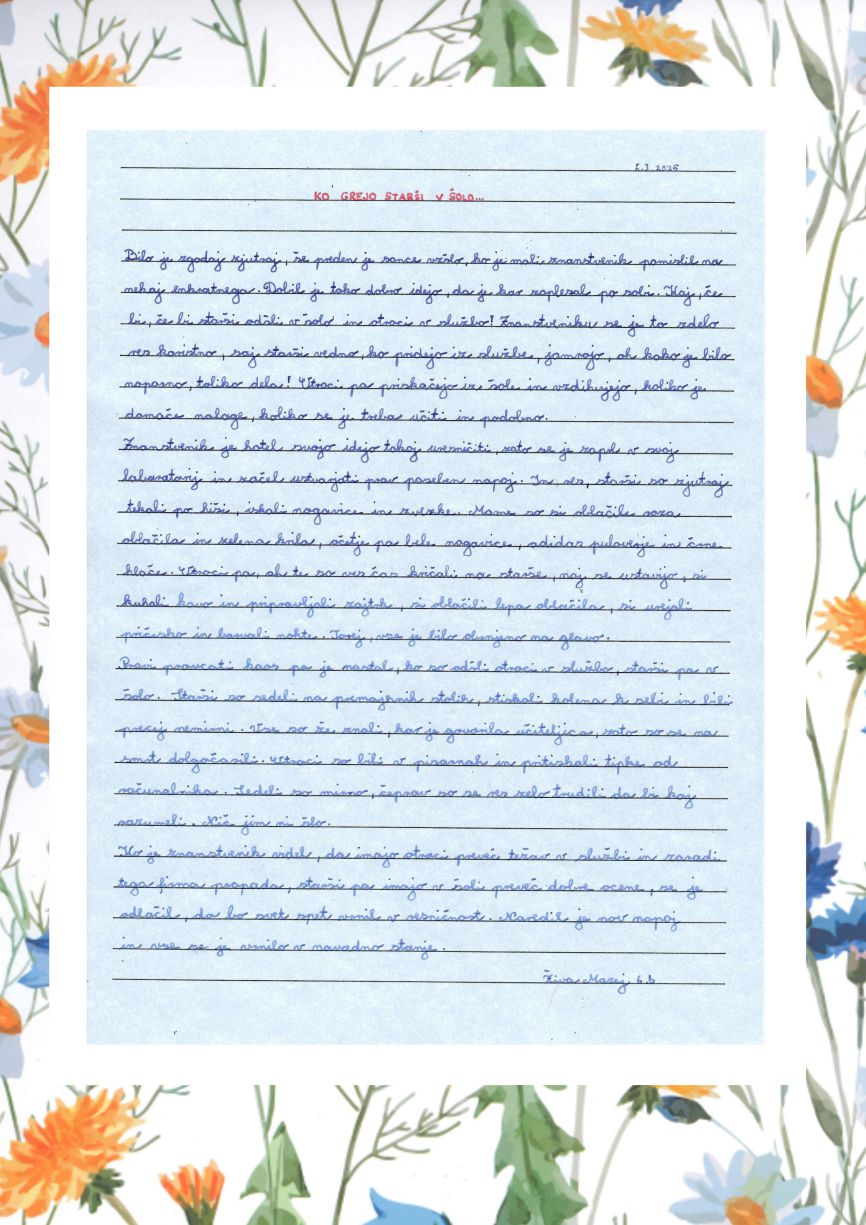 6.3.2025
KO GREJO STARŠI V ŠOLO...
Bilo je zgodaj zjutraj, še preden je sonce vzšlo, ko je mali znanstvenik pomislil na
nekaj enkratnega. Dobil je tako dobro idejo, da je kar zaplesal po sobi. Kaj, če
bi, če bi starši odšli v šolo in otroci v službo! Znanstveniku se je to zdelo
res koristno, saj starši vedno, ko pridejo iz službe, jamrajo, oh kako je bilo
naporno, toliko dela! Otroci pa priskačejo iz šole in vzdihujejo, koliko je
domače naloge, koliko se je treba učiti in podobno.
Znanstvenik je hotel svojo idejo takoj uresničiti, zato se je zaprl v svoj
laboratorij in začel ustvarjati prav poseben napoj. In, res, starši so zjutraj
tekali po hiši, iskali nogavice in zvezke. Mame so si oblačile roza
oblačila in zelena krila, očetje pa bele nogavice, adidas puloverje in črne
hlače. Otroci pa, ah te so ves čas kričali na starše, naj se ustavijo, si
kuhali kavo in pripravljali zajtrk, si oblačili lepa oblačila, si urejali
pričesko in barvali nohte. Torej, vse je bilo obrnjeno na glavo.
Pravi pravcati kaos pa je nastal, ko so odšli otroci v službo, starši pa v
šolo. Starši so sedeli na premajhnih stolih, stiskali kolena k sebi in bili
precej nemirni. Vse so že znali, kar je govorila učiteljica, zato so se na
smrt dolgočasili. Otroci so bili v pisarnah in pritiskali tipke od
računalnika. Sedeli so mirno, čeprav so se res zelo trudili da bi kaj
razumeli. Nič jim ni šlo.
Ko je znanstvenik videl, da imajo otroci preveč težav v službi in zaradi
tega firma propada, starši pa imajo v šoli preveč dobre ocene, se je
odločil, da bo svet spet vrnil v resničnost. Naredil je nov napoj
in vse se je vrnilo v navadno stanje.
Živa Mazej 6.b